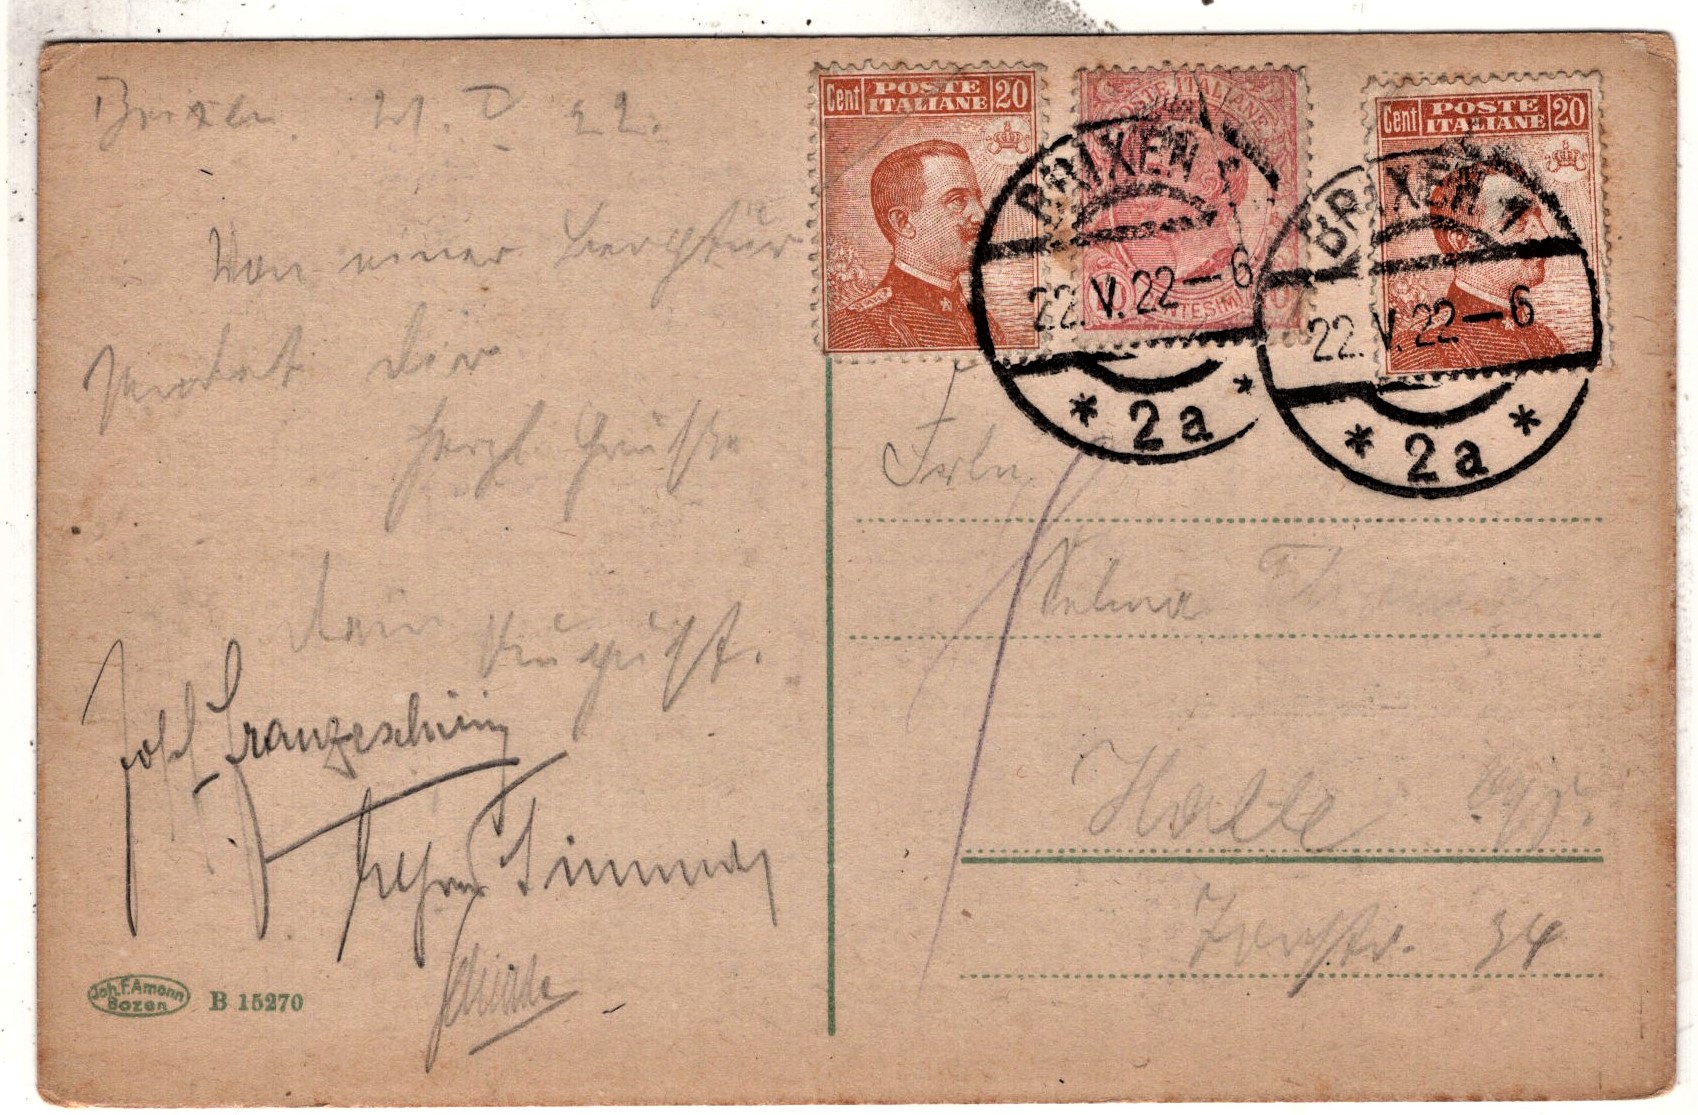 Brixen. 21. V 22.
Von einer Bergtur
sendet dir
herzl. Grüsse
Dein August.
Josef Franzeschini
Joh. F. Amonn
Bozen
B 15270
Cent POSTE ITALIANE 20
POSTE ITALIANE
CENTESIMI
Cent POSTE ITALIANE 20
BRIXEN 1
22.V.22–6
* 2a *
BRIXEN 1
22.V.22–6
* 2a *
Frln.
Selma
Halle
34